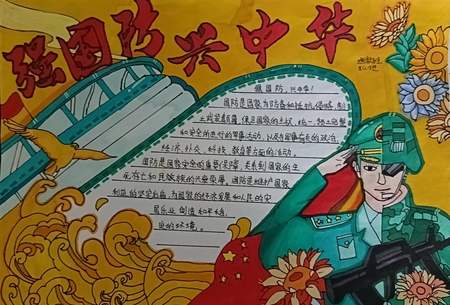 强国防兴中华
强国防,兴中华!
国防是国家为防备和抵抗侵略,制
止武装颠覆,保卫国家的主权、统一、领土完整
和安全所进行的军事活动,以及与军事有关的政治、
经济、外交、科技、教育等方面的活动。
国防是国家安全的 关系到国家的生
死存亡和民族的兴衰荣辱。国防是维护国家
利益的 为国家的 发展和人民的安
居乐业创造和平稳
定的环境。